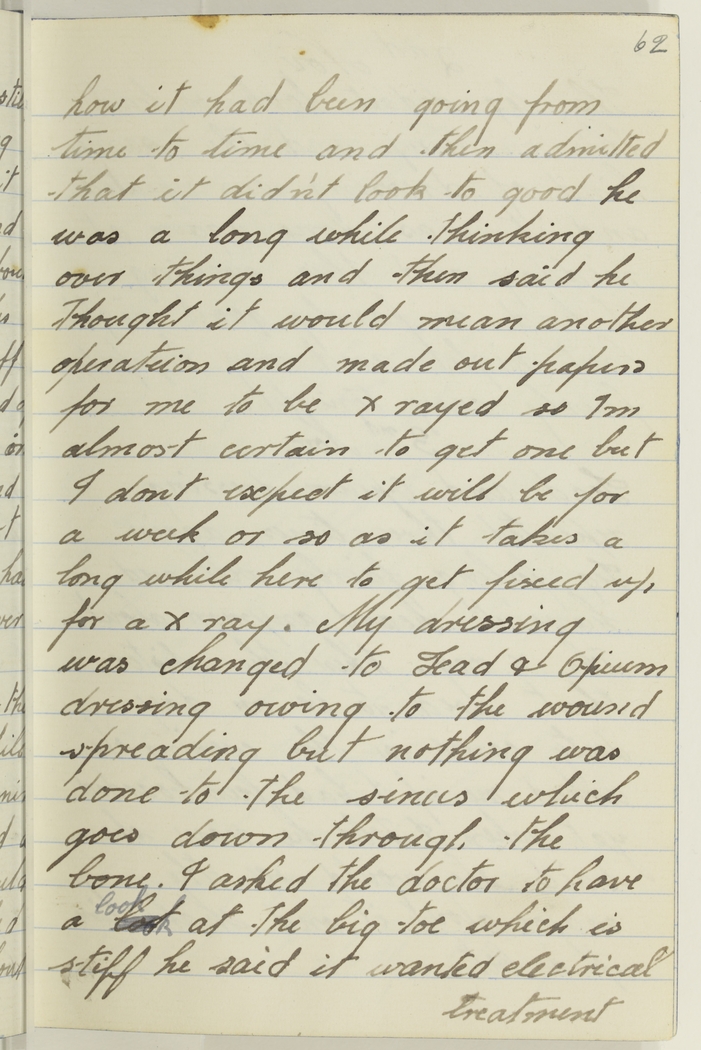 62
how it had been going from
time to time and then admitted
that it didn't look to good he
was a long while thinking
over things and then said he
thought it would mean another
operation and made out papers
for me to be X rayed so Im
almost certain to get one but
I dont expect it will be for
a week or so as it takes a
long while here to get fixed up
for a X ray. My dressing
was changed to Lead & Opium
dressing owing to the wound
spreading but nothing was
done to the sinus which
goes down through the
bone. I asked the doctor to have
a look at the big toe which is
stiff he said it wanted electrical
treatment